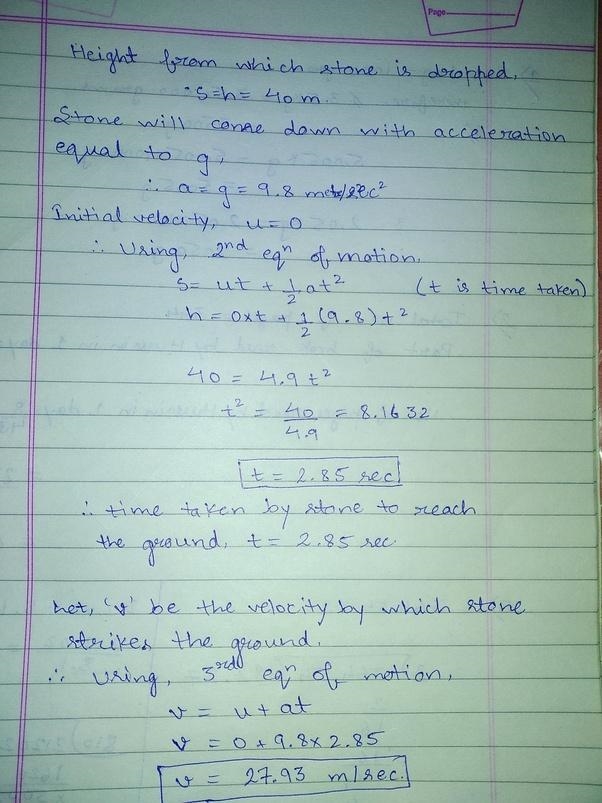 Page
Height from which stone is dropped,
s=h= 40 m.
Stone will come down with acceleration
equal to g,
∴ a = g = 9.8 meter/sec²
Initial velocity, u = 0
∴ Using, 2nd eqⁿ of motion,
s= ut + 1/2 at² (t is time taken)
h = 0xt + 1/2 (9.8) t²
40 = 4.9 t²
t² = 40/4.9 = 8.1632
t = 2.85 sec
∴ time taken by stone to reach
the ground, t = 2.85 sec
Let, 'v' be the velocity by which stone
strikes the ground.
∴ Using, 3rd eqⁿ of motion,
v = u + at
v = 0 + 9.8 x 2.85
v = 27.93 m/sec.